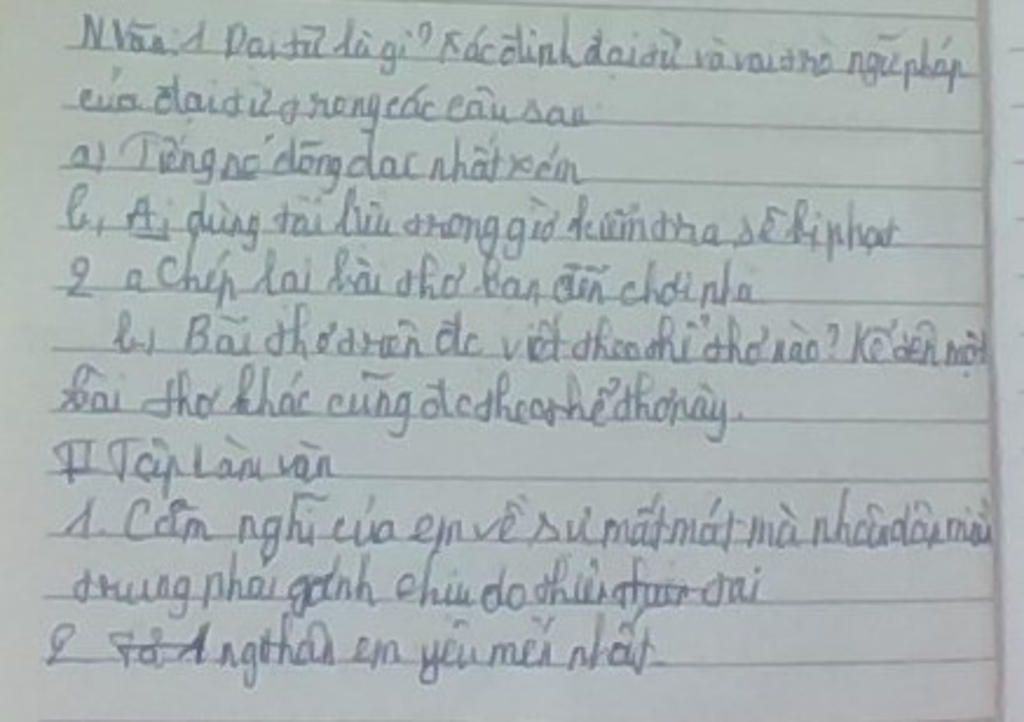 N Văn: 1 Đại từ là gì? Xác định đại từ và vai trò ngữ pháp
của đại từ trong các câu sau
a) Tiếng nó dõng dạc nhất xóm
b, Ai dùng tài liệu trong giờ kiểm tra sẽ bị phạt
2 a Chép lại bài thơ bạn đến chơi nhà
b, Bài thơ trên đc viết theo thể thơ nào? Kể tên một
bài thơ khác cũng đc theo thể thơ này.
II Tập Làm văn
1. Cảm nghĩ của em về sự mất mát mà nhân dân miền
trung phải gánh chịu do thiên tai
2 1 ng thân em yêu mến nhất